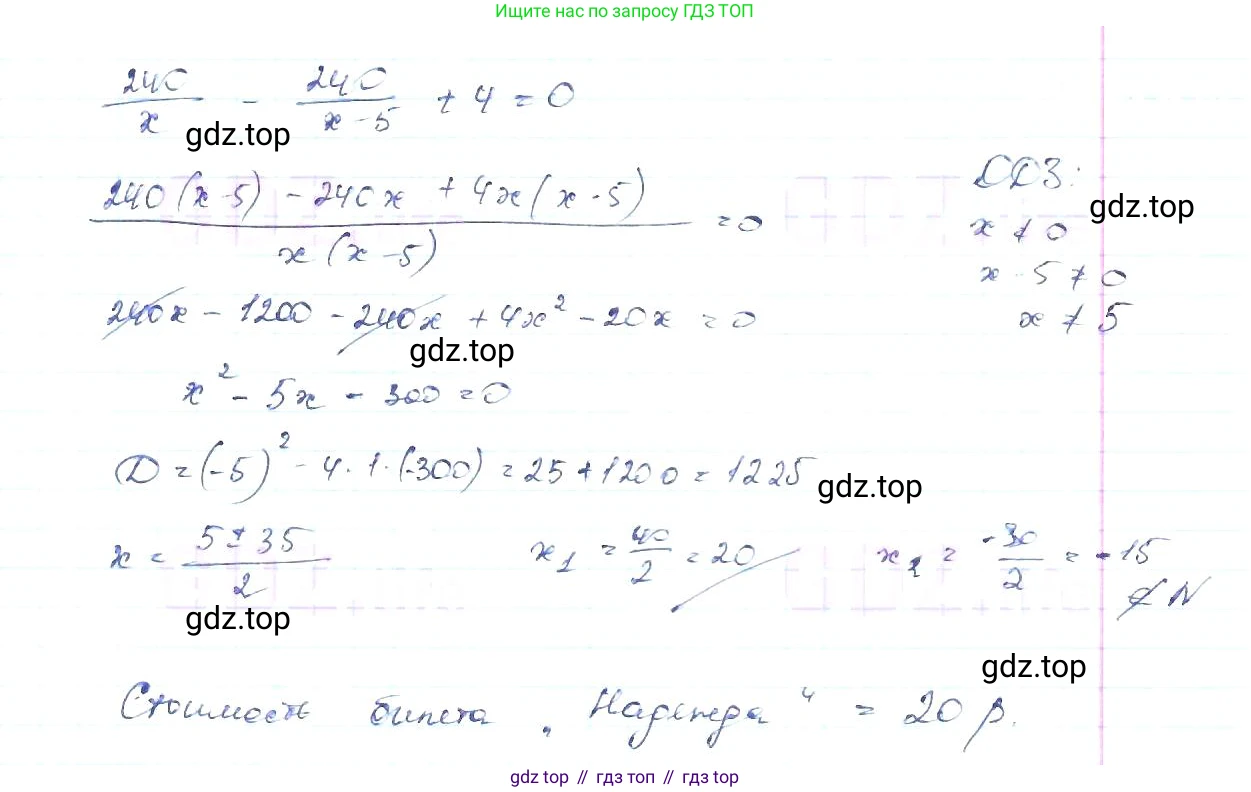 Ищите нас по запросу ГДЗ ТОП
240/x - 240/(x-5) + 4 = 0
gdz.top
(240(x-5) - 240x + 4x(x-5))/(x(x-5)) = 0
ОДЗ:
gdz.top
x ≠ 0
x-5 ≠ 0
x ≠ 5
240x - 1200 - 240x + 4x² - 20x = 0
gdz.top
x² - 5x - 300 = 0
D = (-5)² - 4·1·(-300) = 25 + 1200 = 1225
gdz.top
x = (5±35)/2 x₁ = 40/2 = 20 x₂ = -30/2 = -15 ∉ N
gdz.top
gdz.top
Стоимость билета „Надежда“ = 20 р.
gdz top // гдз топ // gdz top